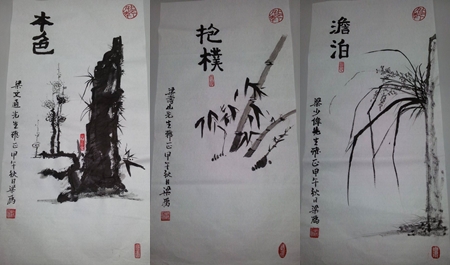 本色
梁文道先生雅正甲午秋日梁
抱樸
先生雅正甲午秋日梁
澹泊
梁少偉先生雅正甲午秋日梁